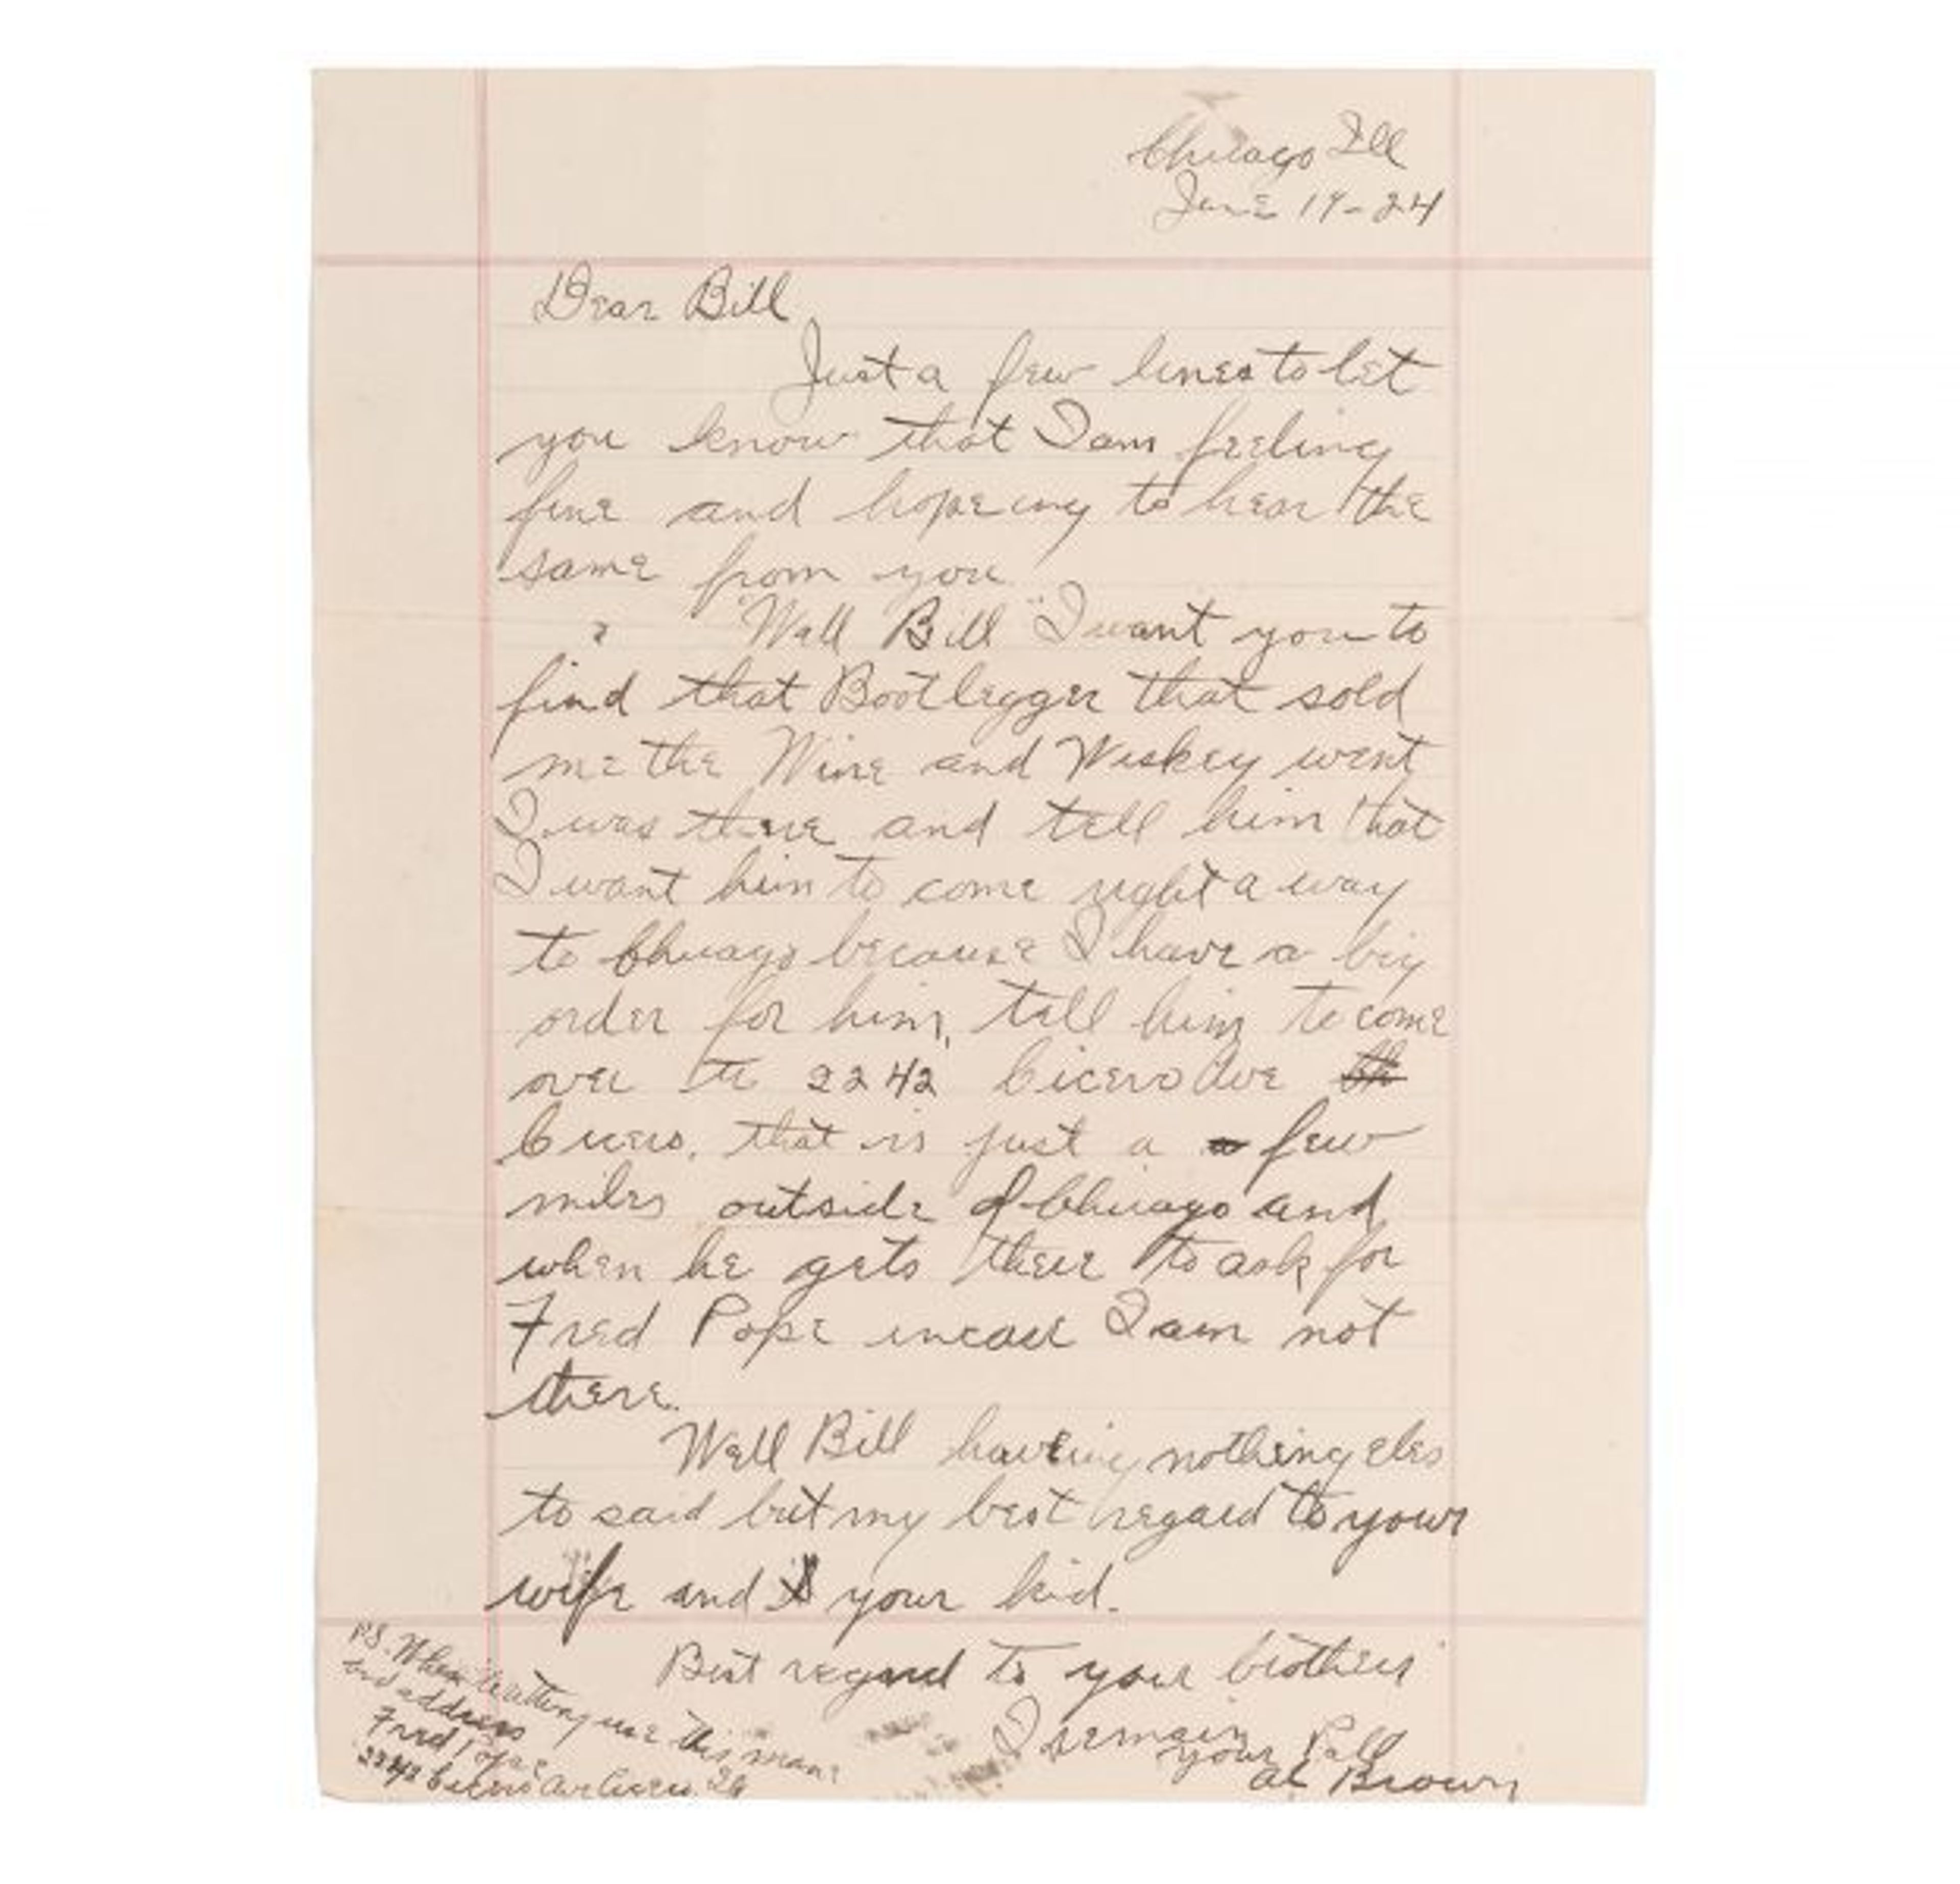 Chicago Ill
June 19-24
Dear Bill,
Just a few lines to let
you know that I am feeling
fine and hopeing to hear the
same from you
"Well Bill" I want you to
find that Bootlegger that sold
me the Wine and Wiskey went
I was there and tell him that
I want him to come right a way
to Chicago because I have a big
order for him, tell him to come
over to 2242 Cicero Ave
Cicero. that is just a few
miles outside of Chicago and
when he gets there to ask for
Fred Pope incase I am not
there.
Well Bill haveing nothing eles
to said but my best regard to your
wife and your kid.
Best regard to your brothers
I remain
your Pall
Al Brown
PS. When writing use this name
and address
Fred Pope
2242 Cicero Ave Cicero. Ill